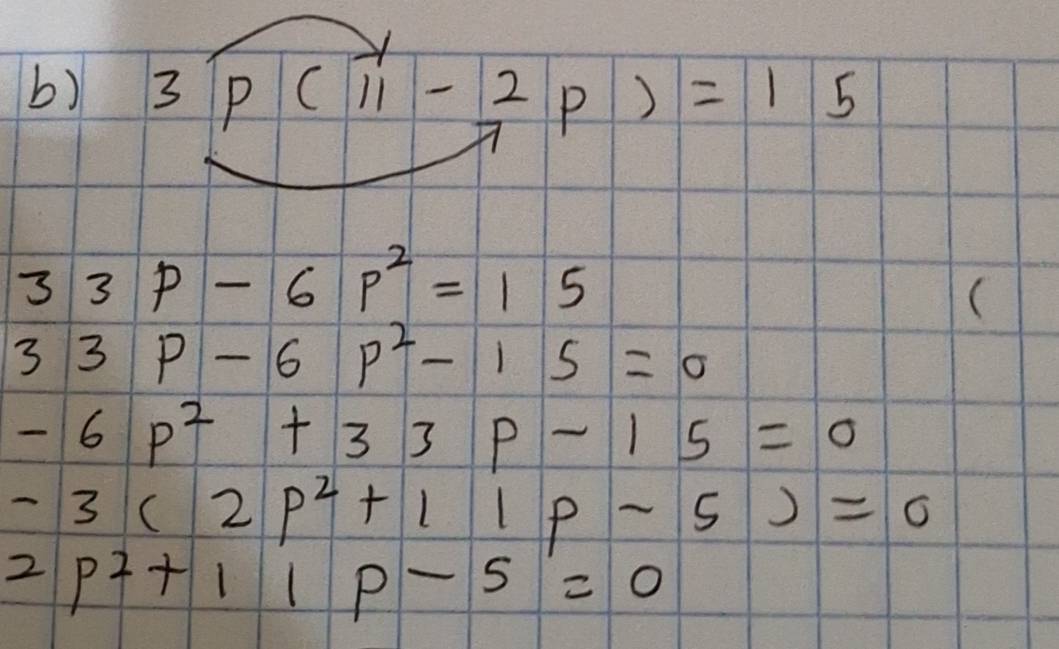 b) 3p(11-2p)=15
33p-6p²=15 (
33p-6p²-15=0
-6p²+33p-15=0
-3(2p²+11p-5)=0
2p²+11p-5=0